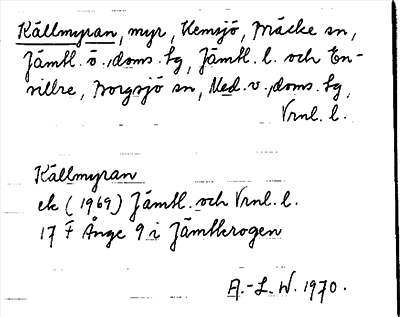 Källmyran, myr, Hemsjö, Bräcke sn,
Jämtl. ö., doms. sg, Jämtl. l. och En-
sillre, Borgsjö sn, Med. v., doms. sg,
Vrnl. l.
Källmyran
ek (1969) Jämtl. och Vrnl. l.
17 F Ånge 9 i Jämtkrogen
A.-L. W. 1970.